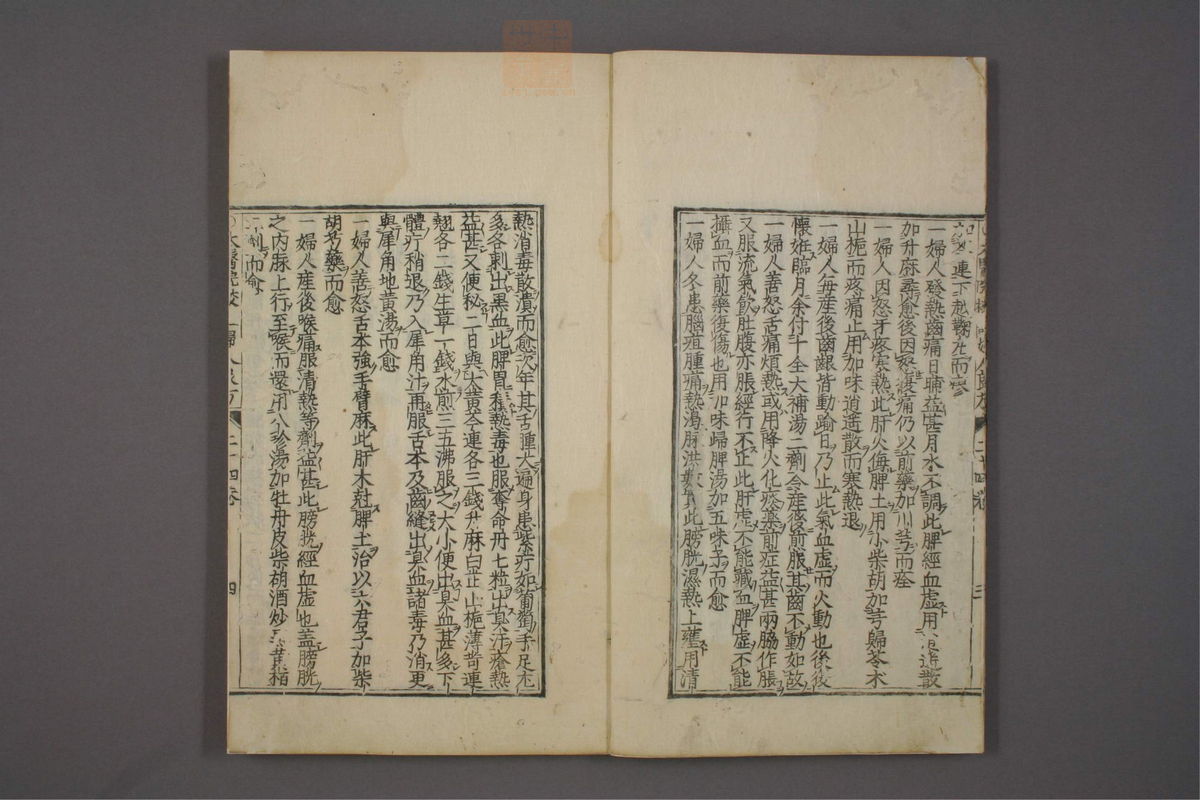 連下越鞠丸而瘥
一婦人發熱齒痛日晡益甚月水不調此脾經血虛用逍遥散
加升麻尋愈後因怒復痛仍以前藥加川芎而痊
一婦人因怒牙疼寒熱此肝火侮脾土用小柴胡加芎歸苓朮
山梔而疼痛止用加味逍遥散而寒熱退
一婦人每産後齒齦皆動踰日乃止此氣血虛而火動也後復
懷姙臨月余付十全大補湯二劑令産後煎服其齒不動如故
一婦人善怒舌痛煩熱或用降火化痰藥前症益甚兩脇作脹
又服流氣飲肚腹亦脹經行不止此肝虛不能藏血脾虛不能
攝血而前藥復傷也用加味歸脾湯加五味子而愈
一婦人冬患腦疽腫痛熱渴脉洪數此膀胱濕熱上壅用清
熱消毒散潰而愈次年其舌腫大遍身患紫疔如葡萄手足尤
多各刺出黑血此脾胃積熱毒也服奪命丹七粒出臭汗瘡熱
益甚又便秘二日與大黃令連各三錢升麻白芷山梔薄荷連
翹各二錢生草一錢水煎三五沸服之大小便出臭血甚多下
體疔稍退乃入犀角汁再服舌本及齒縫出臭血諸毒乃消更
與犀角地黃湯而愈
一婦人善怒舌本強手臂麻此肝木尅脾土治以六君子加柴
胡芍藥而愈
一婦人産後喉痛服清熱等劑益甚此膀胱經血虛也蓋膀胱
之内脉上行至喉而還用八珍湯加牡丹皮柴胡酒炒黃栢
劑而愈